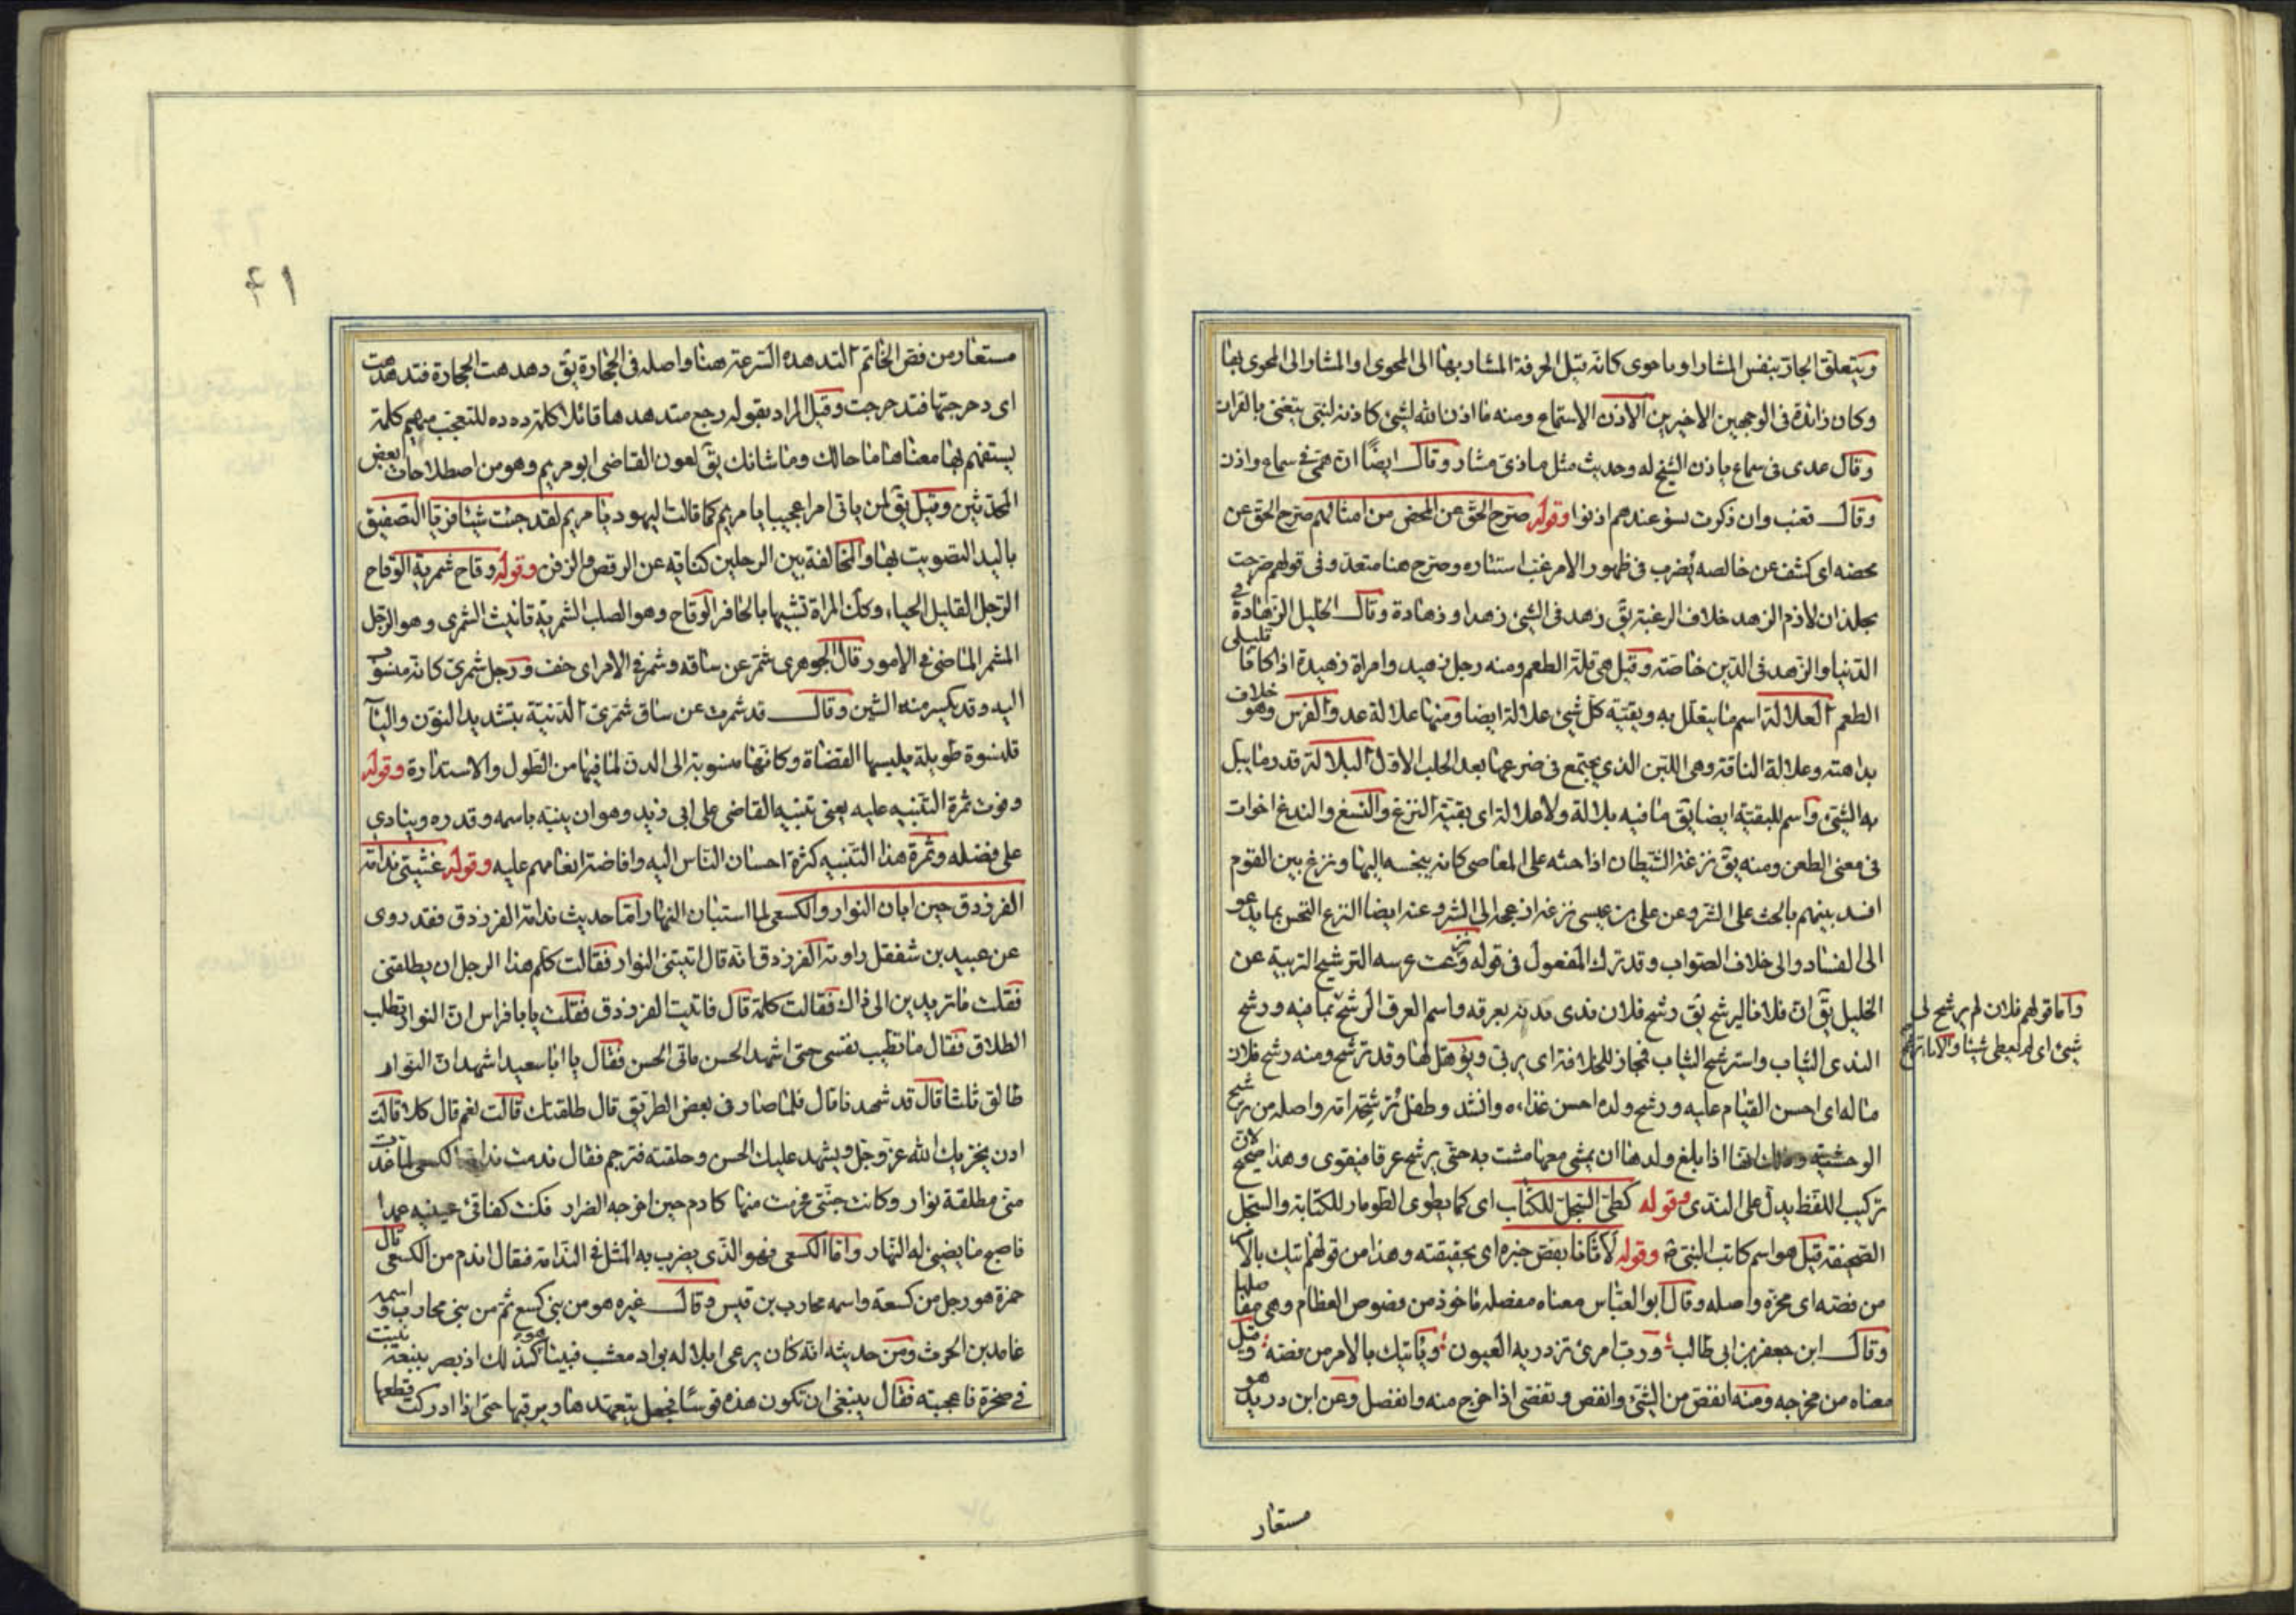 ويتعلق الجار بنفس المشار او ما حوى كانه قيل الحرفة المشار بها الى المحوى او المشار الى المحوى بها
وكان زائدة فى الوجهين الاخيرين الاذن الاستماع ومنه ما اذن الله لشئ كاذنه لنبى يتغنى بالقران
وقال عدى فى سماع ياذن الشيخ له وحديث مثل ماذى مشار وقال ايضًا ان همى فى سماع واذن
وقال قعنب وان ذكرت بسوء عندهم اذنوا وقوله صرح الحق عن المحض من امثالهم صرح الحق عن
محضه اى كشف عن خالصه يضرب فى ظهور الامر غب استتاره وصرح هنا متعد وفى قولهم صرحت
بجلذان لازم الزهد خلاف الرغبة يق زهد فى الشئ زهدا وزهادة وقال الخليل الزهادة فى
الدنيا والزهد فى الدين خاصة وقيل هى قلة الطعم ومنه رجل زهيد وامراة زهيدة اذا كانا قليلى
الطعم العلالة اسم ما يتعلل به وبقية كل شئ علالة ايضا ومنها علالة عدو الفرس وهو خلاف
بداهته وعلالة الناقة وهى اللبن الذى يجتمع فى ضرعها بعد الحلب الاول البلالة قدر ما يبل
به الشئ واسم للبقية ايضا يق ما فيه بلالة ولا علالة اى بقية النزغ والنسغ والندغ اخوات
فى معنى الطعن ومنه يق نزغه الشيطان اذا حثه على المعاصى كانه ينخسه اليها ونزغ بين القوم
افسد بينهم بالحث على الشر وعن على بن عيسى نزغه ازعجه الى الشر وعنه ايضا النزغ النخس بما يدعو
الى الفساد والى خلاف الصواب وقد ترك المفعول فى قوله ونزغت عرسه الترشيح التربية عن
الخليل يق ان فلانا ليرشح يق رشح فلان ندى بدنه بعرقه واسم العرق الرشح بما فيه ورشح
الندى الثياب واسترشح الثياب فمجاز للخلافة اى يربى ويؤهل لها وقد ترشح ومنه رشح فلان
ماله اى احسن القيام عليه ورشح ولده احسن غذاءه وانشد وطفل ترشحه امه واصله من ترشيح
الوحشية وذلك انها اذا بلغ ولدها ان يمشى معها مشت به حتى يرشح عرقا فيقوى وهذا صحيح لان
تركيب اللفظ يدل على الندى وقوله كطى السجل للكتاب اى كما يطوى الطومار للكتابة والسجل
الصحيفة قيل هو اسم كاتب النبى وقوله فض خبره اى بحقيقته وهذا من قولهم اتيك بالامر
من فصه اى محزه واصله وقال ابو العباس معناه مفصله ماخوذ من فصوص العظام وهى مفاصلها
وقال ابن جعفر بن ابى طالب ورب امرئ تزدريه العيون وياتيك بالامر من فصه وقيل
معناه من مخرجه ومنه انفض من الشئ وانفص وتفصى اذا خرج منه وانفصل وعن ابن دريد هو
واما قولهم فلان لم يرشح لى
شئ اى لم يعطى شيئا
مستعار
٤١
مستعار من فص الخاتم التدهده السرعة هنا واصله فى الحجارة يق دهدهت الحجارة فتدهدهت
اى دحرجتها فتدحرجت وقيل المراد بقوله رجع متدهدها قائلا كلمة ده ده للتعجب مهيم كلمة
يستفهم بها معناها ما حالك وما شانك يق لعون القاضى ابو مريم وهو من اصطلاحات بعض
المحدثين وقيل يق لمن ياتى امرا عجيبا يا مريم كما قالت ليهود يا مريم لقد جئت شيئا فريا التصفيق
باليد التصويت بها والمخالفة بين الرجلين كناية عن الرقص والزفن وقوله وقاح شمرية الوقاح
الرجل القليل الحياء وكك المراة تشبيها بالحافر الوقاح وهو الصلب الشمرية تانيث الشمرى وهو الرجل
المشمر الماضى فى الامور قال الجوهرى شمر عن ساقه وشمر فى الامر اى خف ورجل شمرى كانه منسوب
اليه وقد يكسر منه الشين وقال قد شمرت عن ساق شمرى الدنية بتشديد النون والياء
قلنسوة طويلة يلبسها القضاة وكانها منسوبة الى الدن لما فيها من الطول والاستدارة وقوله
وفوت ثمرة التنبيه عليه يعنى تنبيه القاضى على ابى زيد وهو ان ينبه باسمه وقدره وينادى
على فضله وثمرة هذا التنبيه كثرة احسان الناس اليه وافاضة انعامهم عليه وقوله غشيتنى ندامة
الفرزدق حين ابان النوار والكسعى لما استبان النهار اما حديث ندامة الفرزدق فقد روى
عن عبيد بن شفقل راوية الفرزدق انه قال اتيتنى النوار فقالت كلم هذا الرجل ان يطلقنى
فقلت ما تريدين الى ذاك فقالت كلمه قال فاتيت الفرزدق فقلت يا با فراس ان النوار تطلب
الطلاق فقال ما تطيب نفسى حتى اشهد الحسن فاتى الحسن فقال يا ابا سعيد اشهد ان النوار
طالق ثلثا قال قد شهدنا قال فلما صار فى بعض الطريق قال طلقتك قالت نعم قال كلا قالت
اذن يخزيك الله عز وجل ويشهد عليك الحسن وحلقته فترجم فقال ندمت ندامة الكسعى لما غدت
منى مطلقة نوار وكانت جنتى فخرجت منها كادم حين اخرجه الضرار فكنت كفاقئ عينيه عمدا
فاصبح ما يضئ له النهار واما الكسعى فهو الذى يضرب به المثل فى الندامة فيقال اندم من الكسعى قال
حمزة هو رجل من كسعة واسمه محارب بن قيس وقال غيره هو من بنى كسع ثم من بنى محارب واسمه
غامد بن الحرث ومن حديثه انه كان يرعى ابلا له بواد معشب فبينا هو كذلك اذ بصر بنبعة نبتت
فى صخرة فاعجبته فقال ينبغى ان تكون هذه قوسا فجعل يتعهدها ويرقبها حتى اذا ادركت قطعها